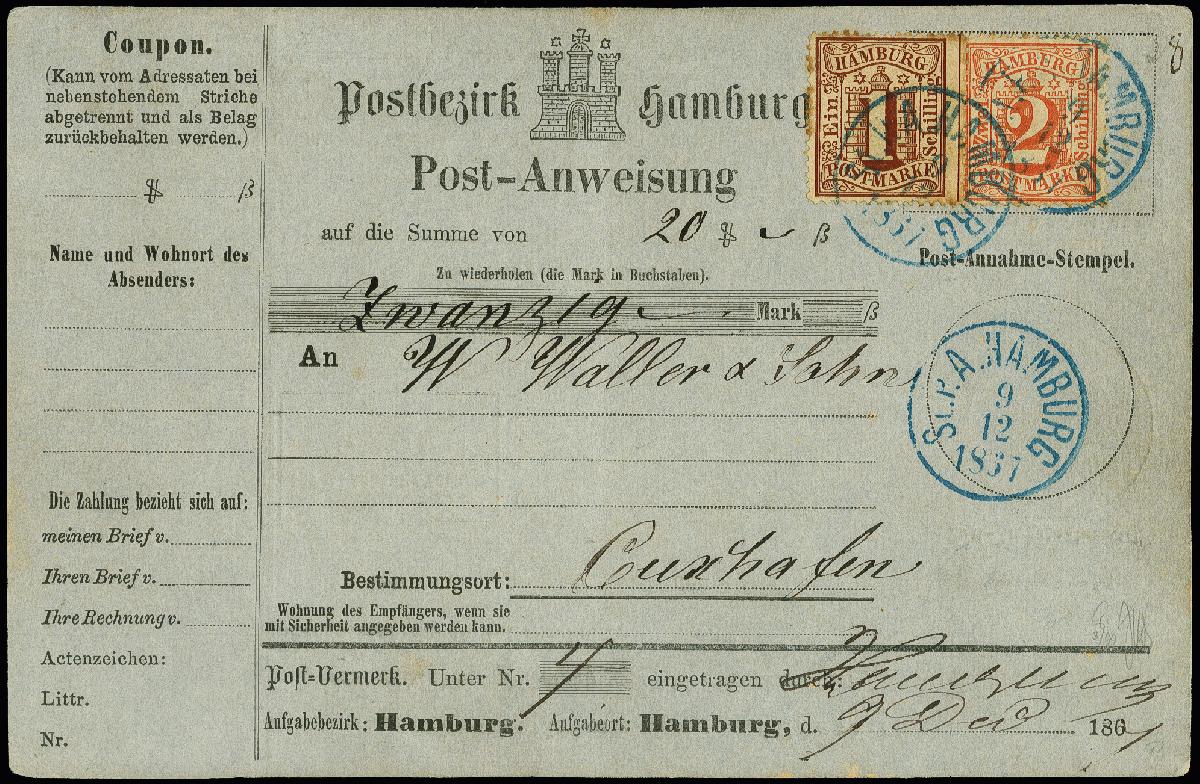 Coupon.
(Kann vom Adressaten bei
nebenstehendem Striche
abgetrennt und als Belag
zurückbehalten werden.)
ß
Name und Wohnort des
Absenders:
Die Zahlung bezieht sich auf:
meinen Brief v.
Ihren Brief v.
Ihre Rechnung v.
Actenzeichen:
Littr.
Nr.
Postbezirk Hamburg
Post-Anweisung
auf die Summe von 20 ß
Zu wiederholen (die Mark in Buchstaben).
Zwanzig Mark ß
An W Waller & Sohn
Bestimmungsort: Cuxhafen
Wohnung des Empfängers, wenn sie
mit Sicherheit angegeben werden kann.
Post-Vermerk. Unter Nr. 4 eingetragen durch:
Aufgabebezirk: Hamburg. Aufgabeort: Hamburg, d. 9 Dec 1867
HAMBURG
Ein
1
Schilling
POSTMARKE
HAMBURG
Zwei
2
Schilling
POSTMARKE
HAMBURG
1867
HAMBURG
8
Post-Annahme-Stempel.
ST.P.A. HAMBURG
9
12
1867